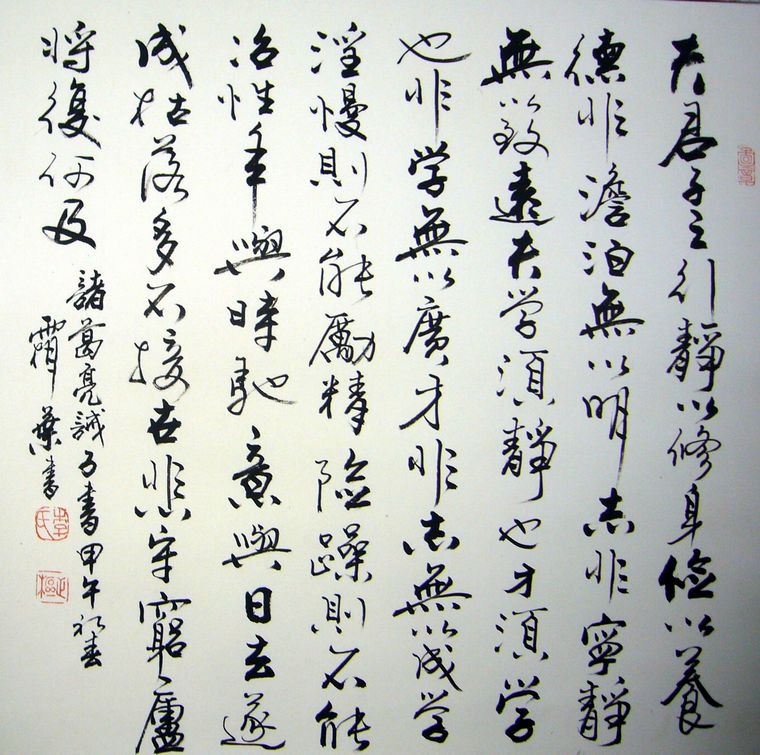 夫君子之行靜以修身儉以養
德非澹泊無以明志非寧靜
無以致遠夫学須靜也才須学
也非学無以廣才非志無以成学
淫慢則不能勵精險躁則不能
冶性年與時馳意與日去遂
成枯落多不接世悲守窮廬
將復何及
諸葛亮誡子書甲午初春
霜葉書
李氏